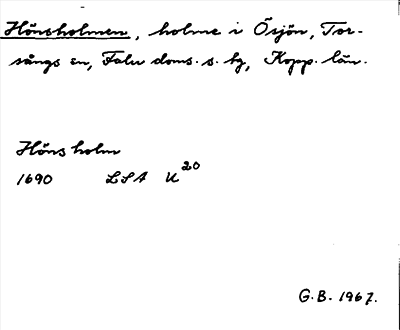 Hönsholmen, holme i Ösjön, Tor-
sångs sn, Falu doms. s. tg, Kopp. län.
Hönsholm
1690 LSA U20
G.B. 1967.